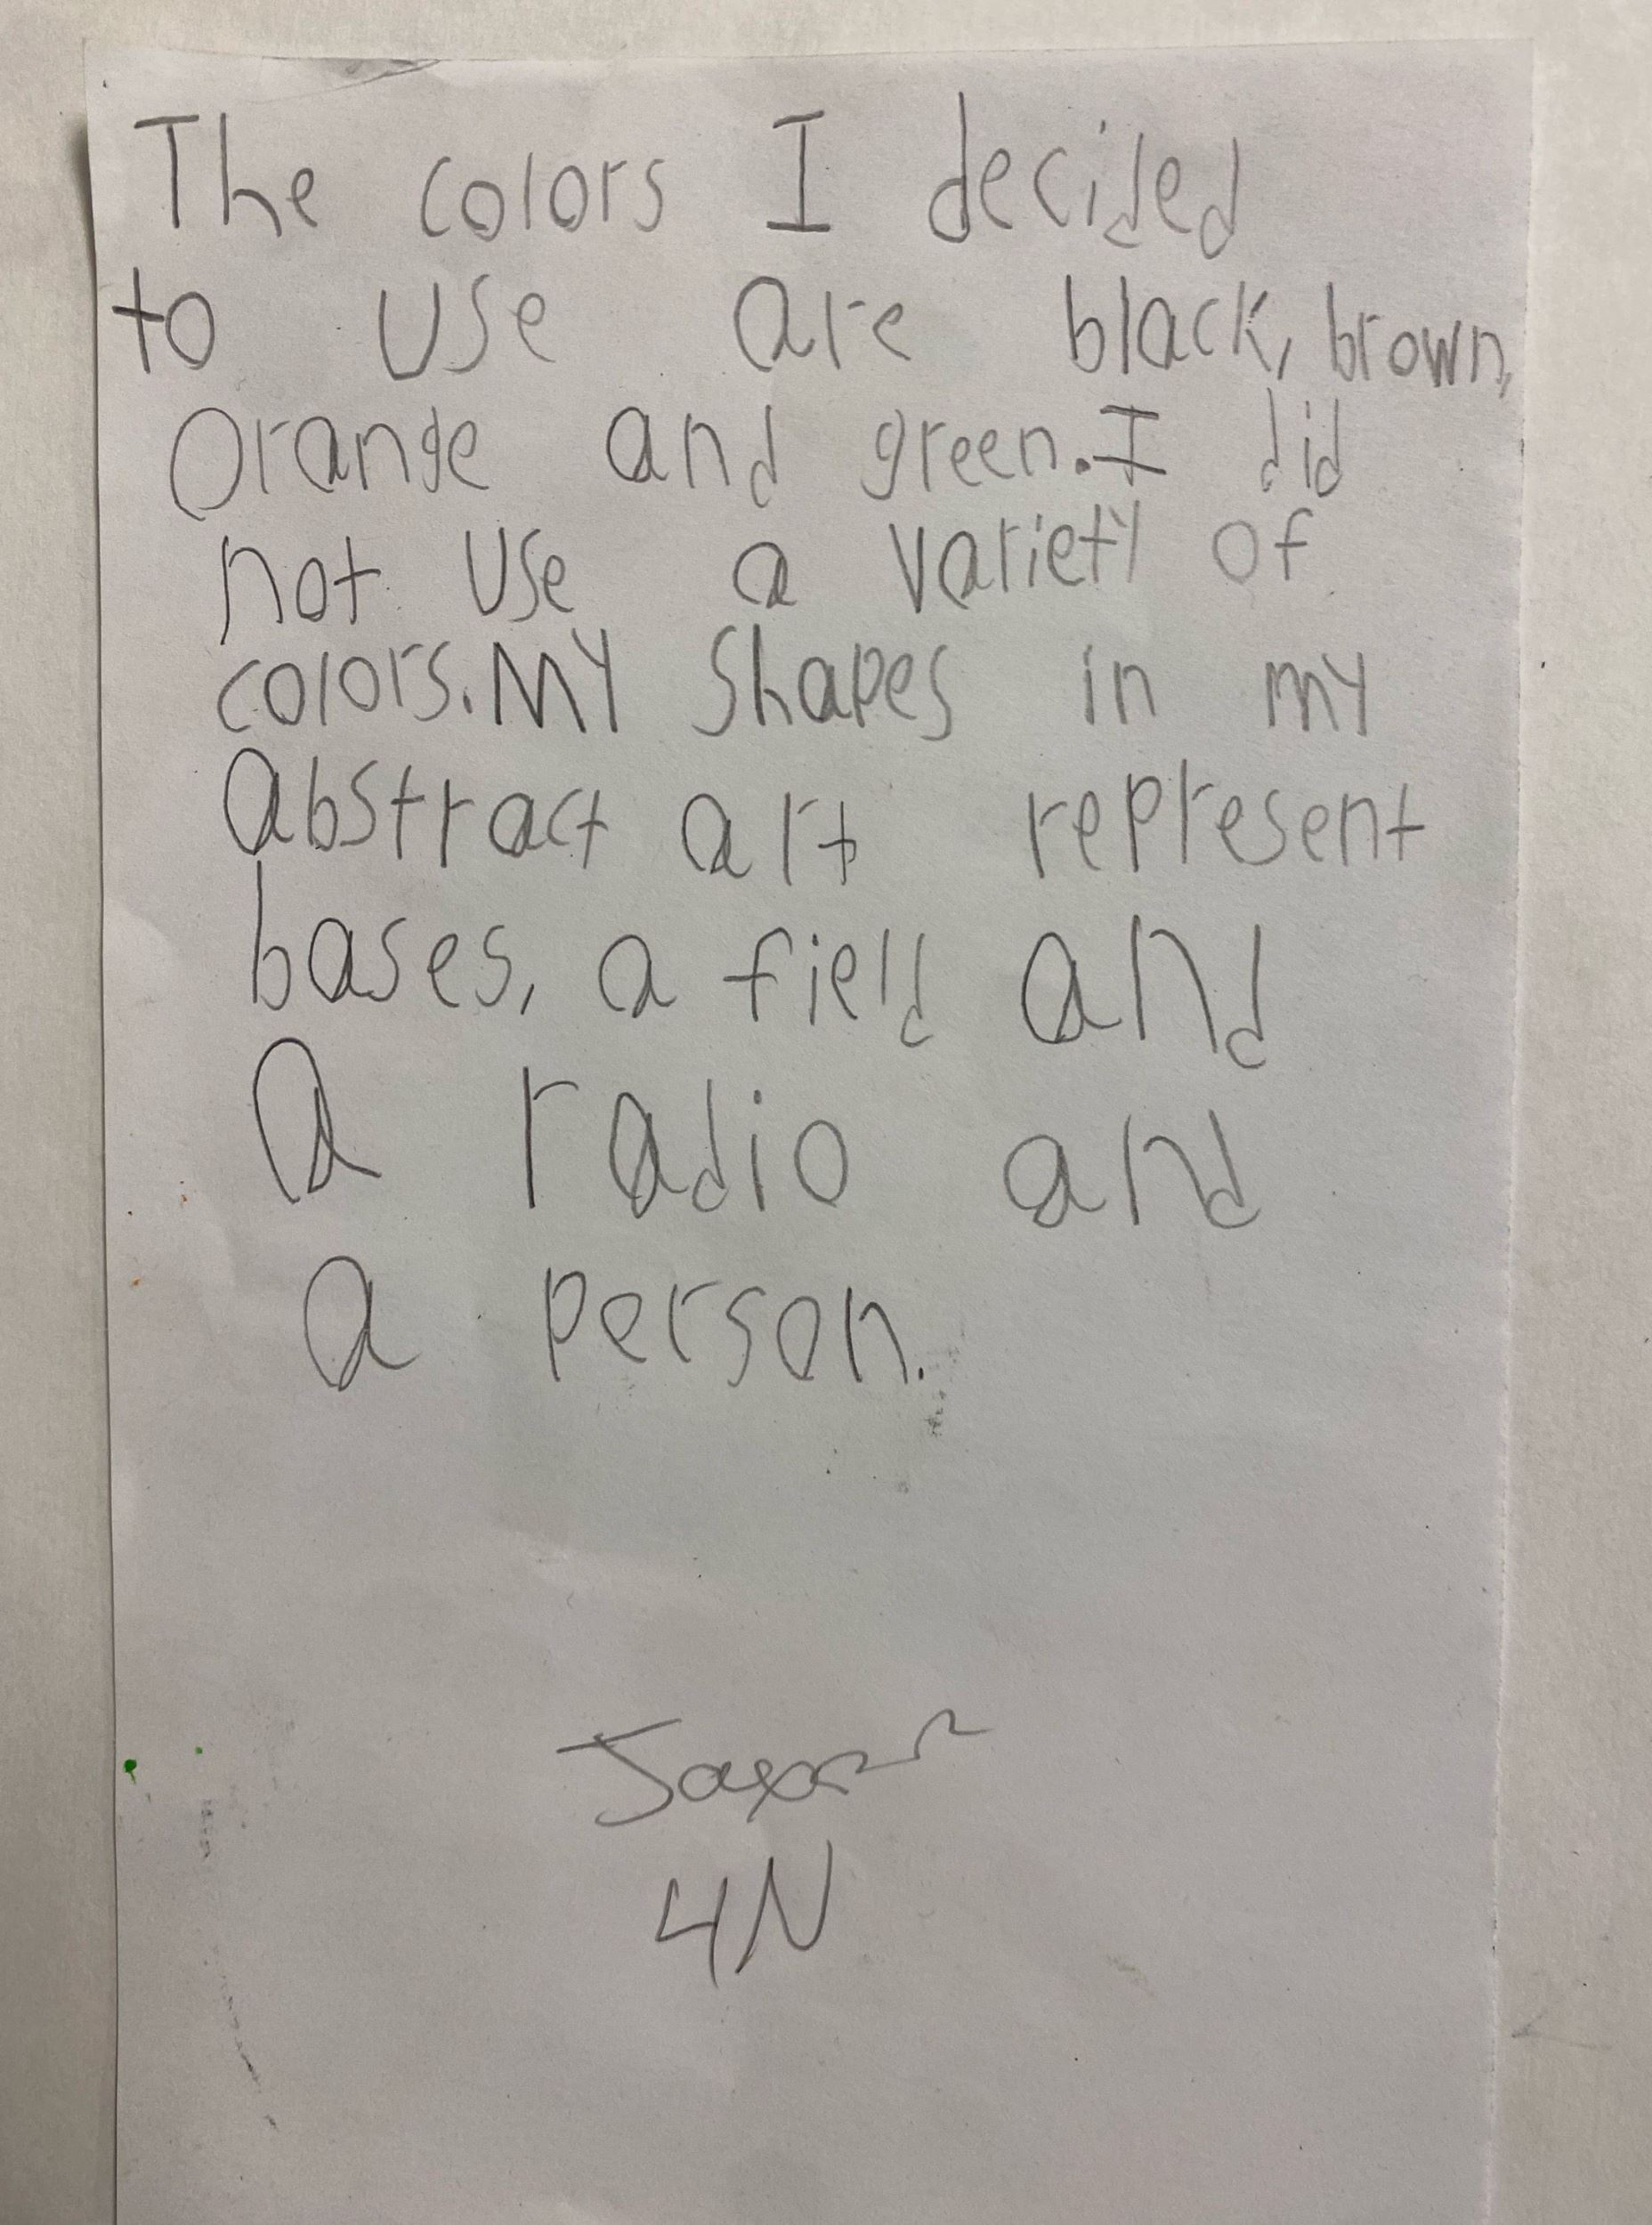 The colors I decided
to use are black, brown,
Orange and green. I did
not use a variety of
colors. My shapes in my
abstract art represent
bases, a field and
a radio and
a person.
4N